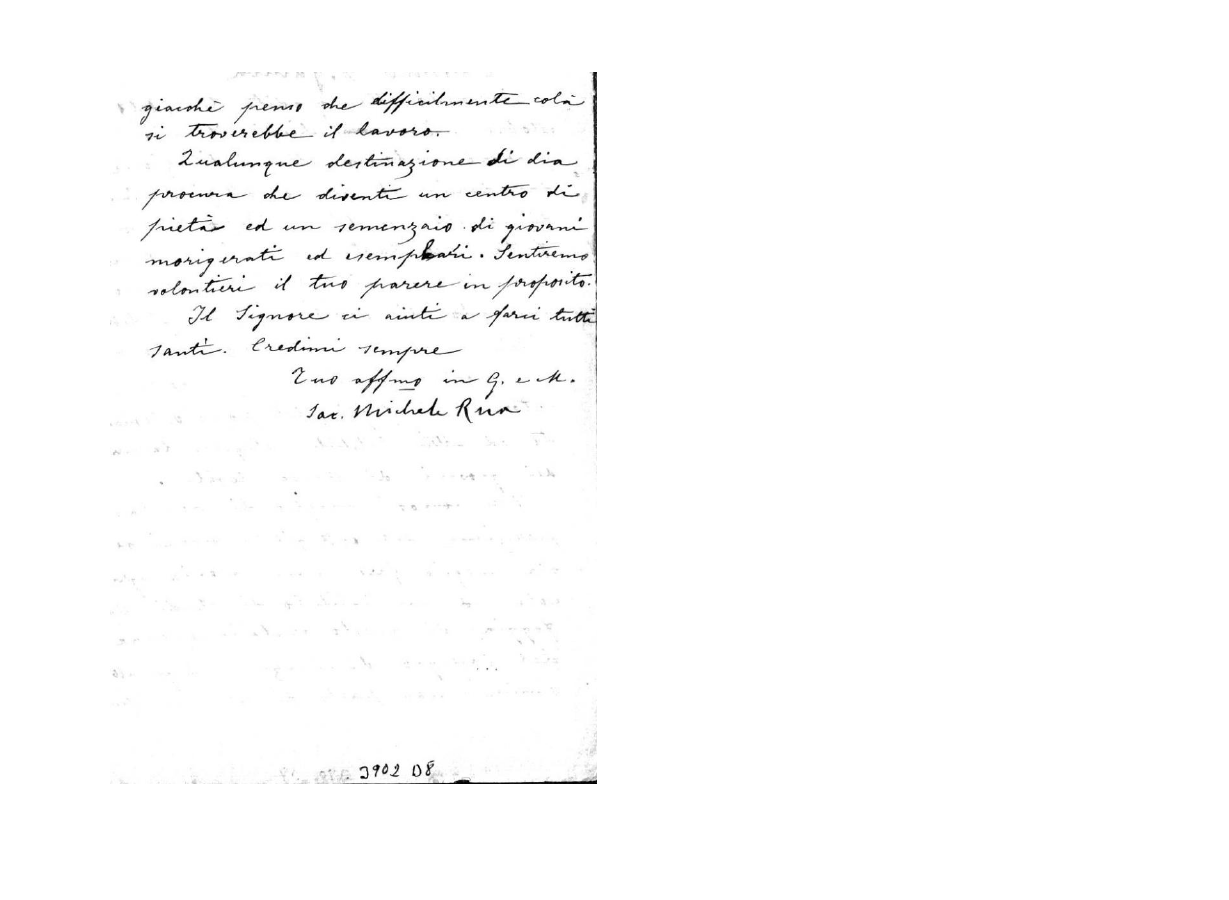 giacchè penso che difficilmente colà
si troverebbe il lavoro.
Qualunque destinazione di dia
procura che diventi un centro di
pietà ed un semenzaio di giovani
morigerati ed esemplari. Sentiremo
volontieri il tuo parere in proposito.
Il Signore ci aiuti a farci tutti
santi. Credimi sempre
Tuo affmo in G. e M.
Sac. Michele Rua
3902 D8